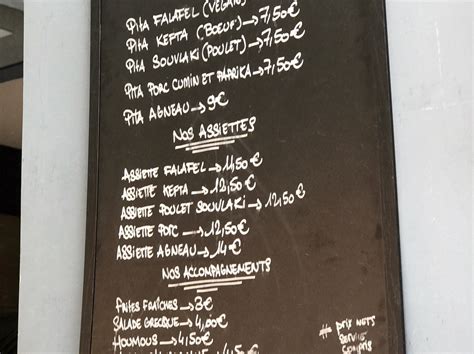 Pita Falafel (Vegan)
Pita Kefta (Boeuf) → 7,50€
Pita Souvlaki (Poulet) → 7,50€
Pita Porc Cumin et Paprika → 7,50€
Pita Agneau → 9€
Nos Assiettes
Assiette Falafel → 11,50€
Assiette Kefta → 12,50€
Assiette Poulet Souvlaki → 12,50€
Assiette Porc → 12,50€
Assiette Agneau → 14€
Nos Accompagnements
Frites Fraîches → 3€
Salade Grecque → 4,00€
Houmous → 4,50€
4,50€
# prix NETS
Service
Compris